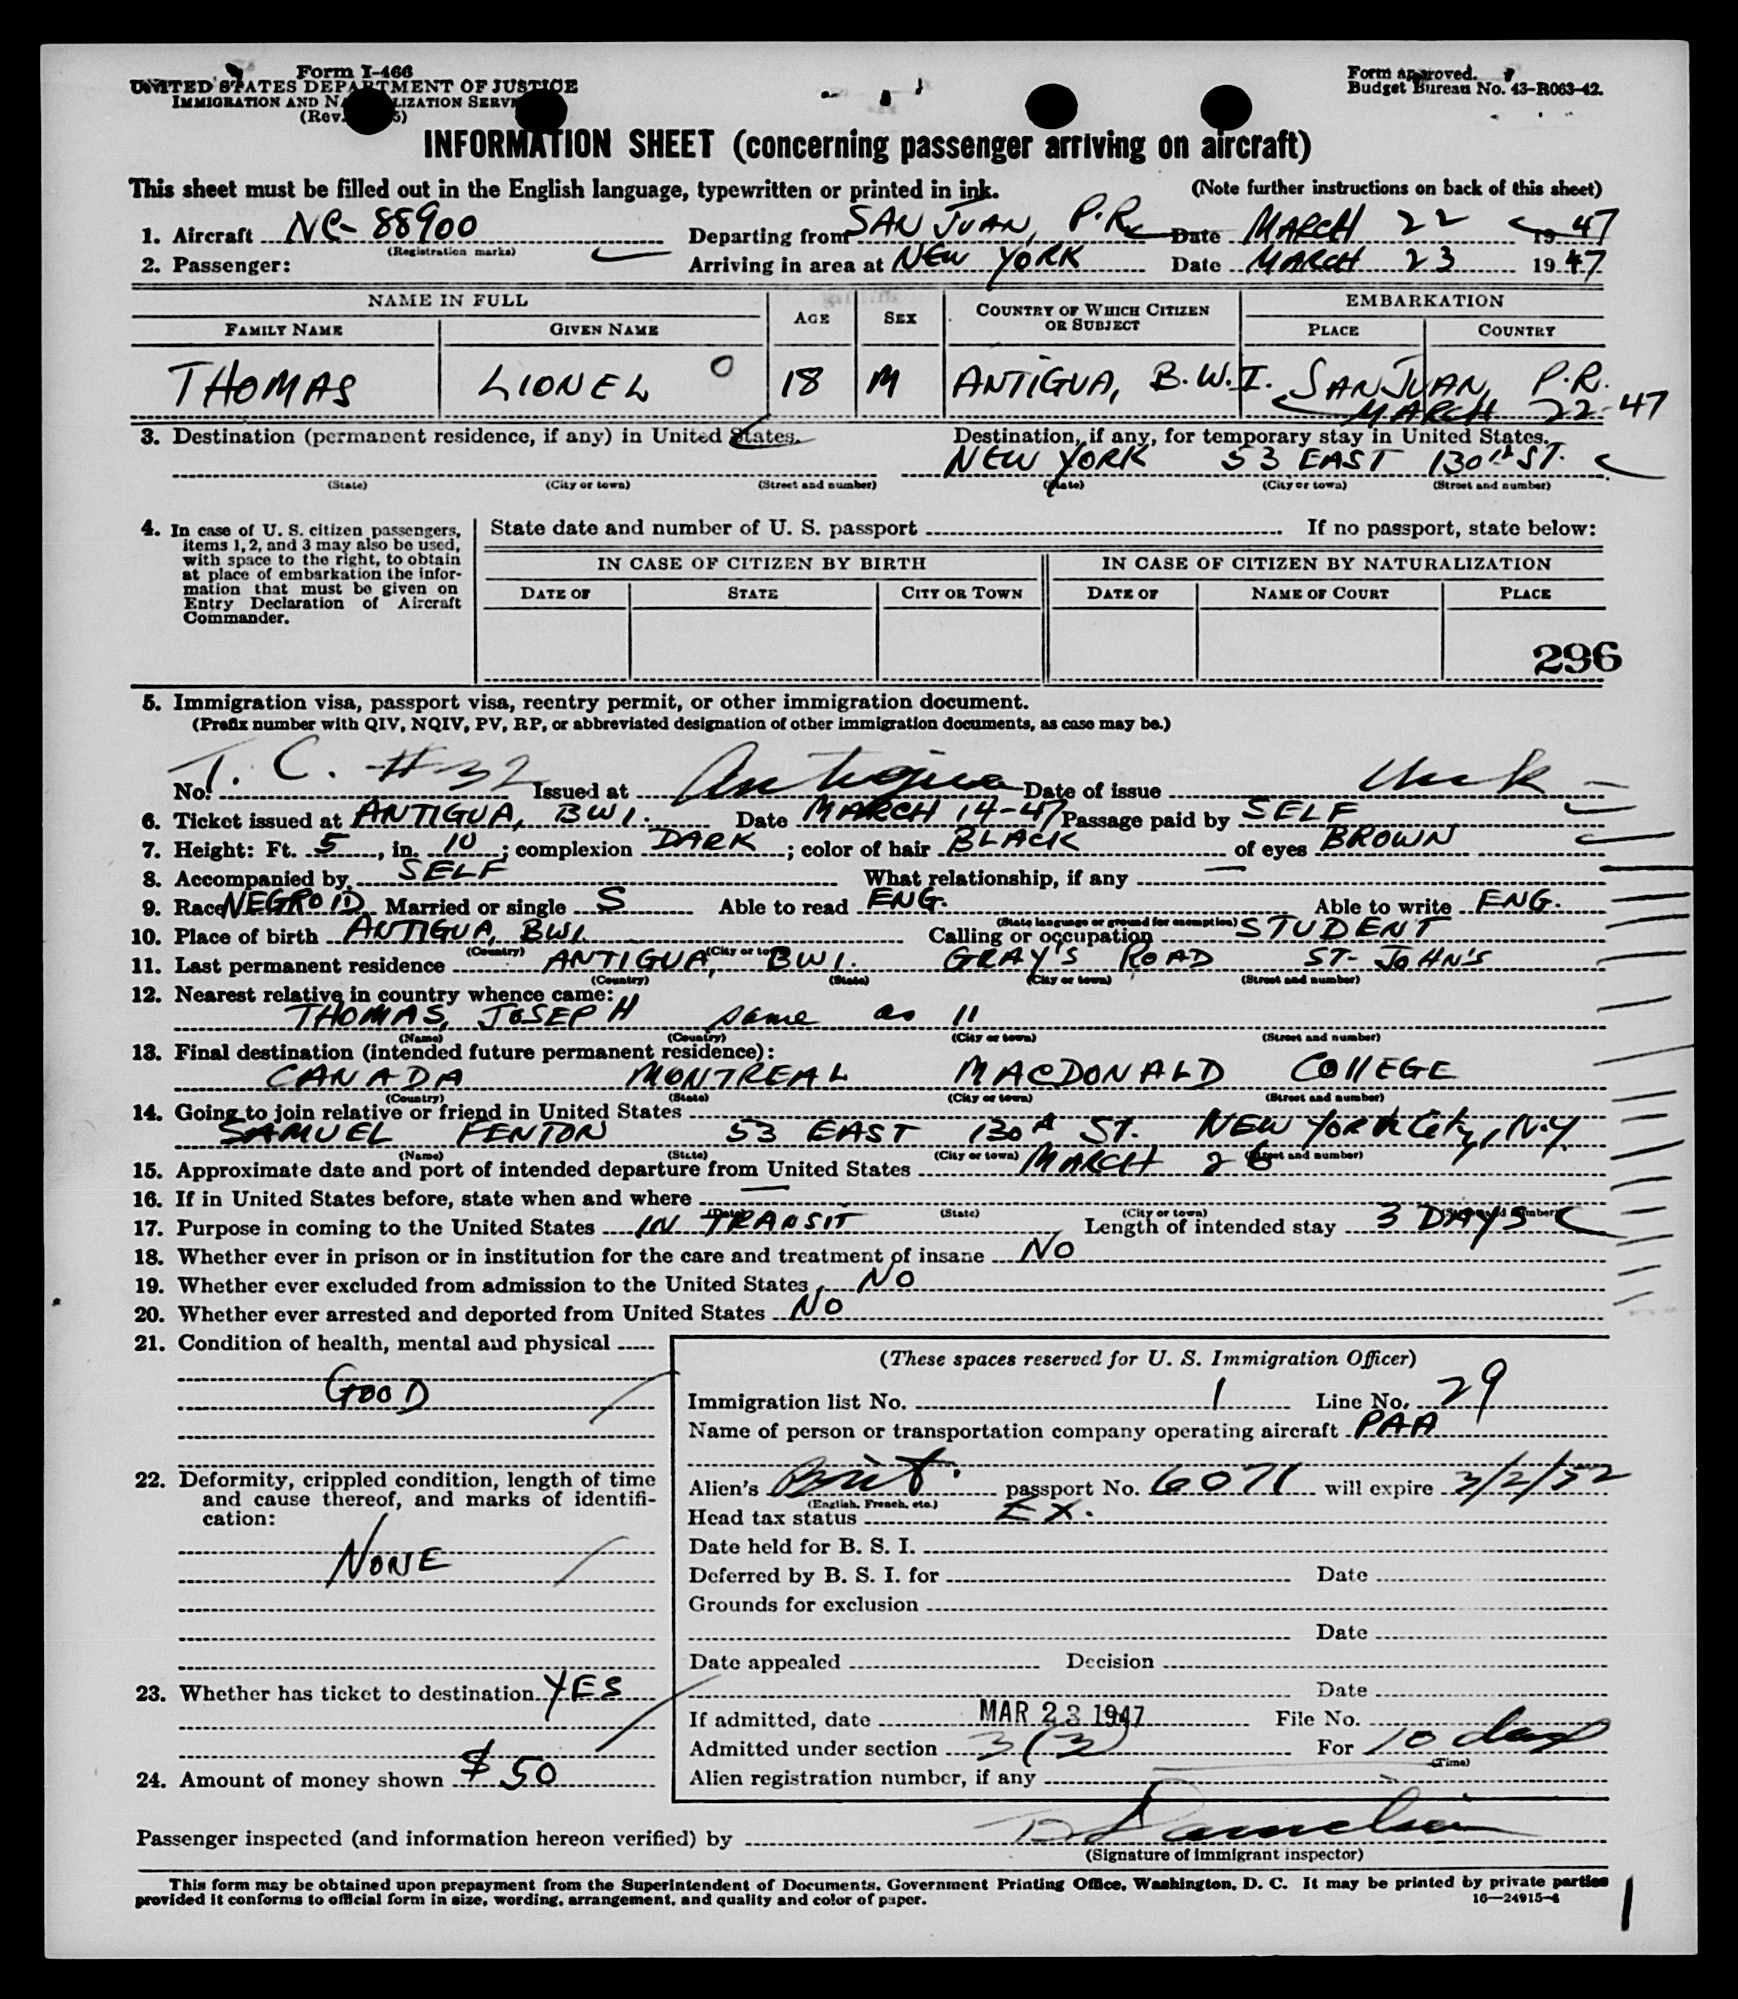 Form I-466
UNITED STATES DEPARTMENT OF JUSTICE
IMMIGRATION AND NATURALIZATION SERVICE
(Rev. 5)
Form approved.
Budget Bureau No. 43-R063-42.
INFORMATION SHEET (concerning passenger arriving on aircraft)
This sheet must be filled out in the English language, typewritten or printed in ink. (Note further instructions on back of this sheet)
1. Aircraft NC-88900 Departing from SAN JUAN, P.R. Date MARCH 22 1947
(Registration marks)
2. Passenger: Arriving in area at NEW YORK Date MARCH 23 1947
NAME IN FULL AGE SEX COUNTRY OF WHICH CITIZEN OR SUBJECT EMBARKATION
FAMILY NAME GIVEN NAME PLACE COUNTRY
THOMAS LIONEL O 18 M ANTIGUA, B.W.I. SAN JUAN, P.R.
MARCH 22-47
3. Destination (permanent residence, if any) in United States. Destination, if any, for temporary stay in United States.
NEW YORK 53 EAST 130th ST.
(State) (City or town) (Street and number) (State) (City or town) (Street and number)
4. In case of U. S. citizen passengers, items 1, 2, and 3 may also be used, with space to the right, to obtain at place of embarkation the information that must be given on Entry Declaration of Aircraft Commander.
State date and number of U. S. passport If no passport, state below:
IN CASE OF CITIZEN BY BIRTH IN CASE OF CITIZEN BY NATURALIZATION
DATE OF STATE CITY OR TOWN DATE OF NAME OF COURT PLACE
296
5. Immigration visa, passport visa, reentry permit, or other immigration document.
(Prefix number with QIV, NQIV, PV, RP, or abbreviated designation of other immigration documents, as case may be.)
No. T. C. # 32 Issued at Antigua Date of issue Unk
6. Ticket issued at ANTIGUA, BWI. Date MARCH 14-47 Passage paid by SELF
7. Height: Ft. 5, in. 10; complexion DARK; color of hair BLACK of eyes BROWN
8. Accompanied by SELF What relationship, if any —
9. Race NEGROID Married or single S Able to read ENG. Able to write ENG.
(State language or ground for exemption)
10. Place of birth ANTIGUA, BWI. Calling or occupation STUDENT
(Country) (City or town)
11. Last permanent residence ANTIGUA, BWI. GRAY'S ROAD ST-JOHN'S
(Country) (State) (City or town) (Street and number)
12. Nearest relative in country whence came:
THOMAS, JOSEPH same as 11
(Name) (Country) (City or town) (Street and number)
13. Final destination (intended future permanent residence):
CANADA MONTREAL MACDONALD COllEGE
(Country) (State) (City or town) (Street and number)
14. Going to join relative or friend in United States
SAMUEL FENTON 53 EAST 130th ST. NEW YORK City, N.Y.
(Name) (State) (City or town) (Street and number)
15. Approximate date and port of intended departure from United States MARCH 26
16. If in United States before, state when and where —
(Date) (State) (City or town) (Street and number)
17. Purpose in coming to the United States IN TRANSIT Length of intended stay 3 DAYS
18. Whether ever in prison or in institution for the care and treatment of insane NO
19. Whether ever excluded from admission to the United States NO
20. Whether ever arrested and deported from United States NO
21. Condition of health, mental and physical
GOOD
22. Deformity, crippled condition, length of time
and cause thereof, and marks of identifi-
cation:
NONE
23. Whether has ticket to destination YES
24. Amount of money shown $50
(These spaces reserved for U. S. Immigration Officer)
Immigration list No. 1 Line No. 29
Name of person or transportation company operating aircraft PAA
Alien's Brit. passport No. 6071 will expire 3/2/52
(English, French, etc.)
Head tax status EX.
Date held for B. S. I.
Deferred by B. S. I. for Date
Grounds for exclusion
Date
Date appealed Decision
Date
If admitted, date MAR 23 1947 File No.
Admitted under section 3(3) For 10 days
(Time)
Alien registration number, if any
Passenger inspected (and information hereon verified) by
(Signature of immigrant inspector)
This form may be obtained upon prepayment from the Superintendent of Documents, Government Printing Office, Washington, D. C. It may be printed by private parties
provided it conforms to official form in size, wording, arrangement, and quality and color of paper.
16—24915-4
1